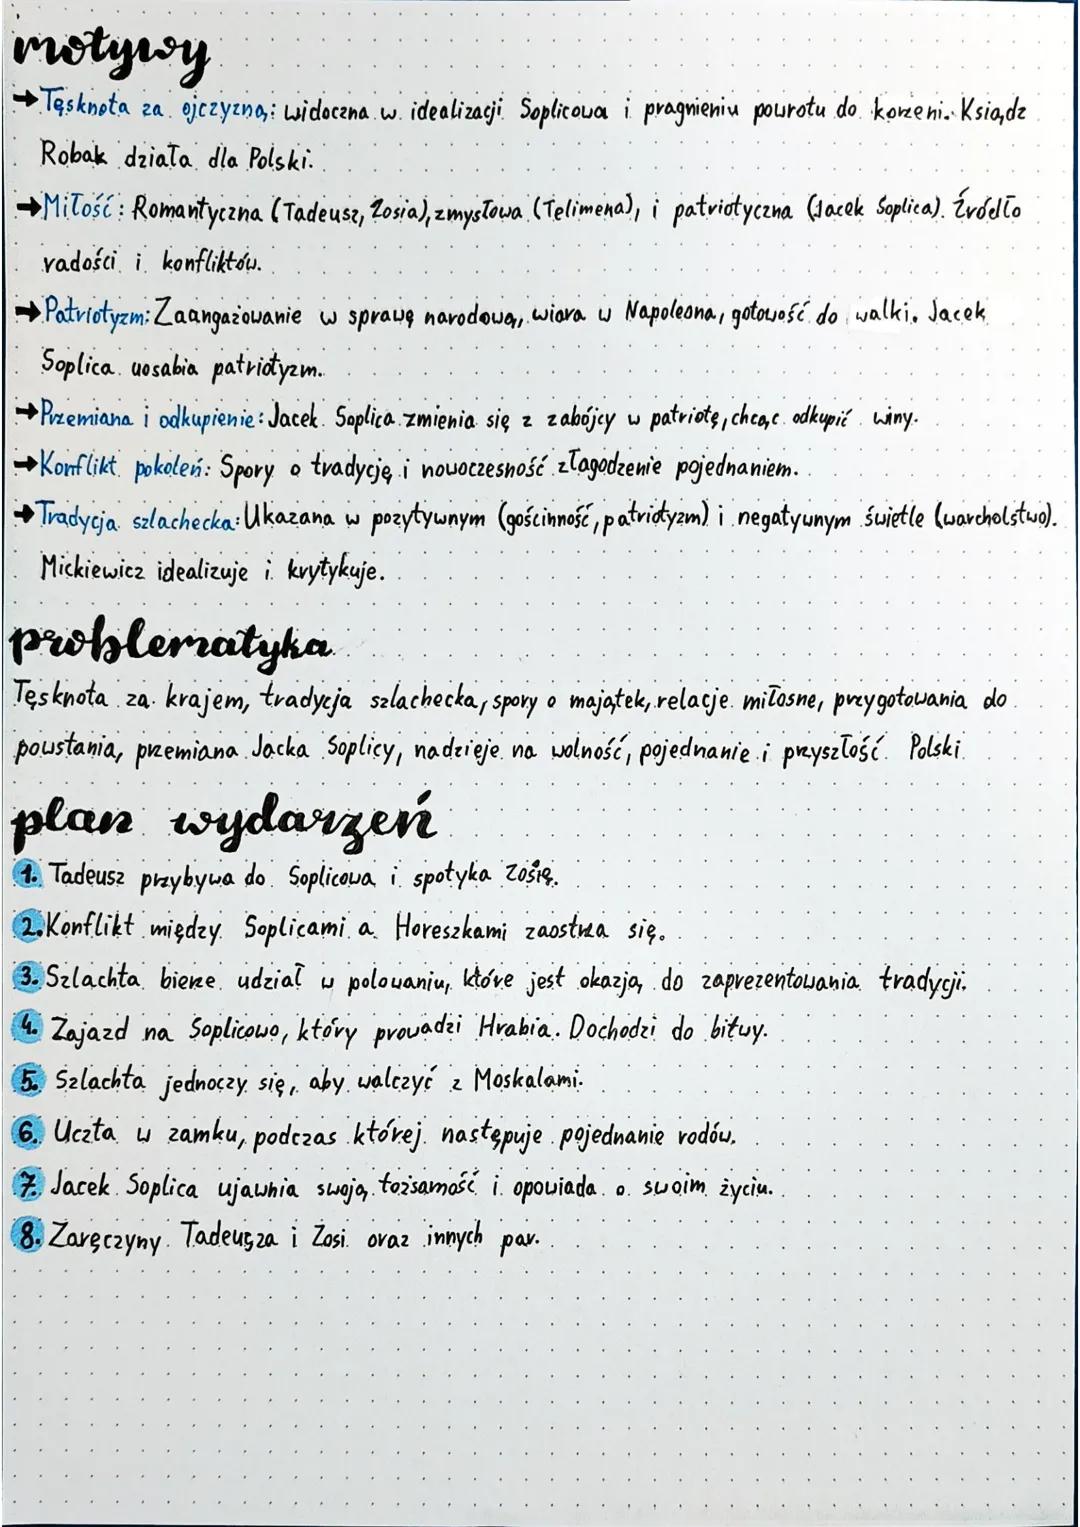 motywy
→Tęsknota za ojczyzną: widoczna w idealizacji Soplicowa i pragnieniu powrotu do korzeni. Ksiądz
Robak działa dla Polski.
→Miłość: Romantyczna (Tadeusz, Zosia), zmysłowa (Telimena), i patriotyczna (Jacek Soplica). Źródło
radości i konfliktów.
→Patriotyzm: Zaangażowanie w sprawę narodową, wiara w Napoleona, gotowość do walki. Jacek
Soplica uosabia patriotyzm.
→Przemiana i odkupienie: Jacek Soplica zmienia się z zabójcy w patriotę, chcąc odkupić winy.
→Konflikt pokoleń: Spory o tradycję i nowoczesność złagodzenie pojednaniem.
→Tradycja szlachecka: Ukazana w pozytywnym (gościnność, patriotyzm) i negatywnym świetle (warcholstwo).
Mickiewicz idealizuje i krytykuje.
problematyka
Tęsknota za krajem, tradycja szlachecka, spory o majątek, relacje miłosne, przygotowania do
powstania, przemiana Jacka Soplicy, nadzieje na wolność, pojednanie i przyszłość Polski
plan wydarzeń
1. Tadeusz przybywa do Soplicowa i spotyka Zosię.
2. Konflikt między Soplicami a Horeszkami zaostrza się.
3. Szlachta bierze udział w polowaniu, które jest okazją do zaprezentowania tradycji.
4. Zajazd na Soplicowo, który prowadzi Hrabia. Dochodzi do bitwy.
5. Szlachta jednoczy się, aby walczyć z Moskalami.
6. Uczta w zamku, podczas której następuje pojednanie rodów.
7. Jacek Soplica ujawnia swoją tożsamość i opowiada o swoim życiu.
8. Zaręczyny Tadeusza i Zosi oraz innych par.